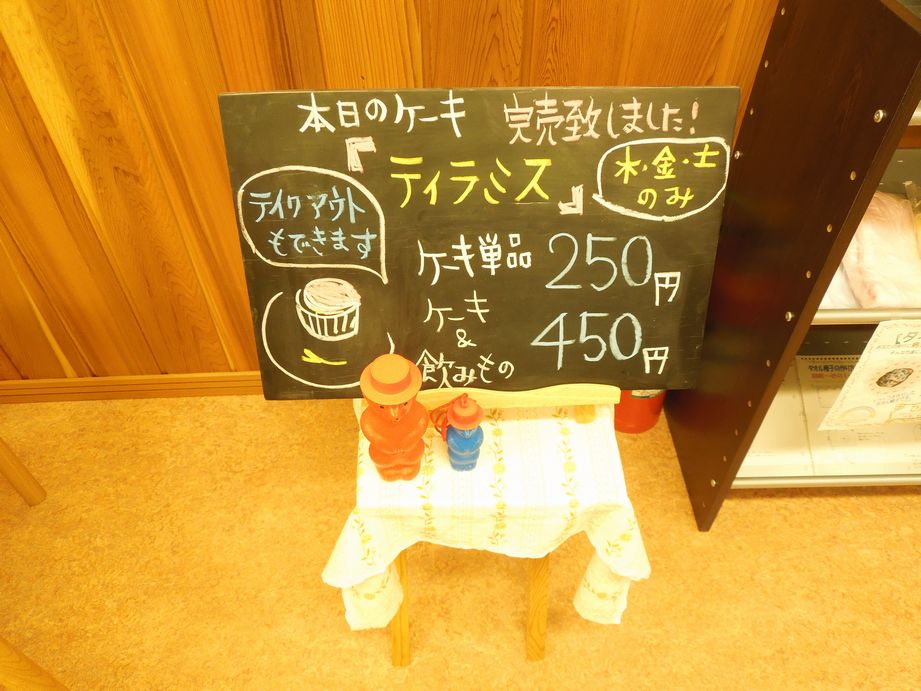 本日のケーキ 完売致しました!
『ティラミス』
木・金・土
のみ
テイクアウト
もできます
ケーキ単品 250円
ケーキ
&
飲みもの 450円